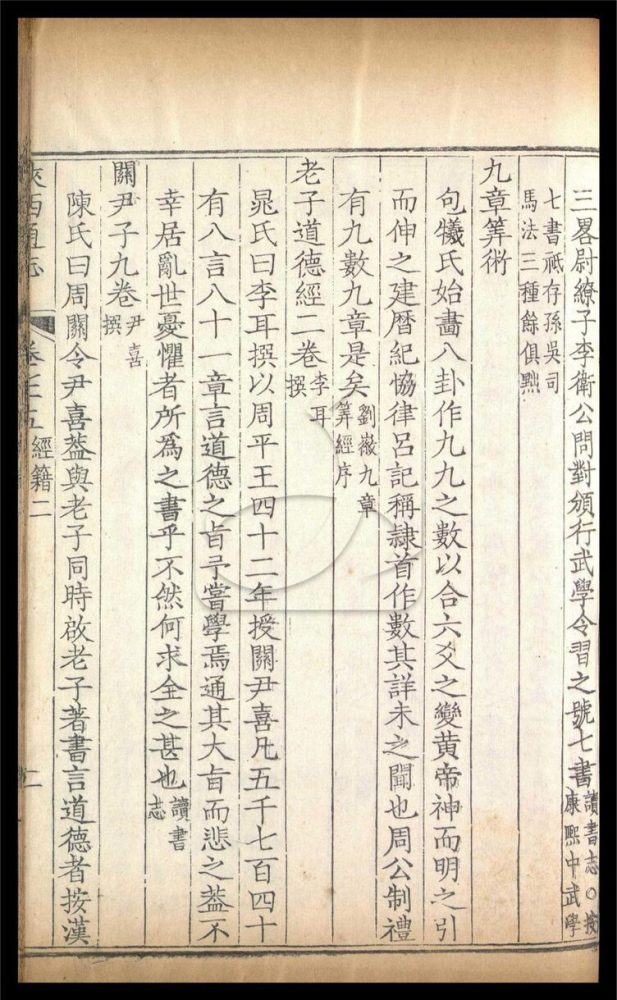 三畧尉繚子李衛公問對頒行武學令習之號七書讀書志○按
康熙中武學
七書祗存孫吳司
馬法三種餘俱黜
九章筭術
包犧氏始畵八卦作九九之數以合六爻之變黃帝神而明之引
而伸之建曆紀協律呂記稱隷首作數其詳未之聞也周公制禮
有九數九章是矣劉徽九章
筭經序
老子道德經二卷李耳
撰
晁氏曰李耳撰以周平王四十二年授關尹喜凡五千七百四十
有八言八十一章言道德之旨予嘗學焉通其大旨而悲之葢不
幸居亂世憂懼者所爲之書乎不然何求全之甚也讀書
志
關尹子九卷尹喜
撰
陳氏曰周關令尹喜葢與老子同時啟老子著書言道德者按漢
陝西通志 卷七十五 經籍二 二